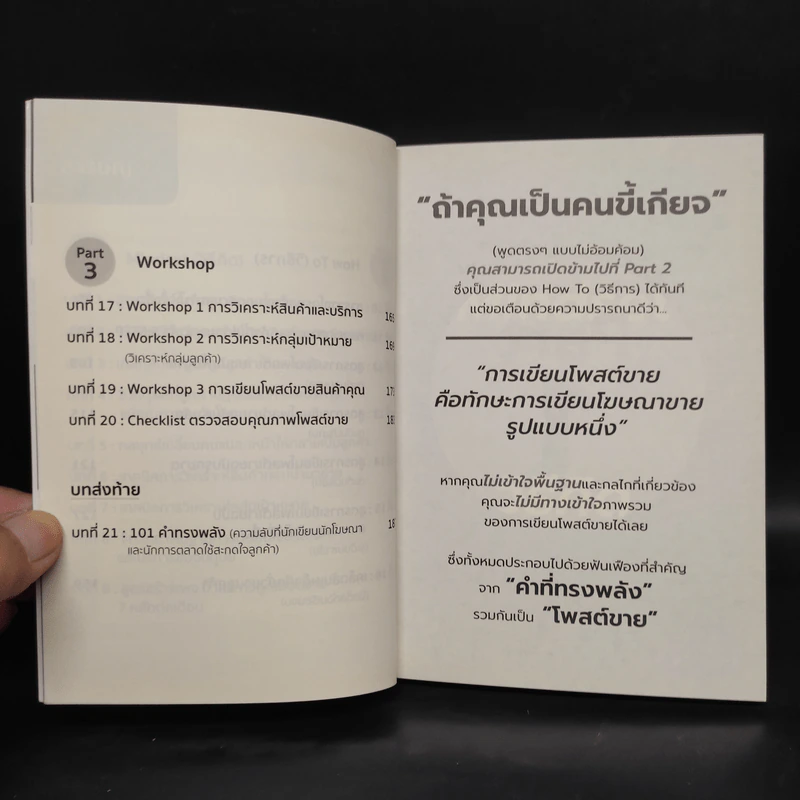 Part
3
Workshop
บทที่ 17 : Workshop 1 การวิเคราะห์สินค้าและบริการ
บทที่ 18 : Workshop 2 การวิเคราะห์กลุ่มเป้าหมาย
(วิเคราะห์กลุ่มลูกค้า)
บทที่ 19 : Workshop 3 การเขียนโพสต์ขายสินค้าคุณ
บทที่ 20 : Checklist ตรวจสอบคุณภาพโพสต์ขาย
บทส่งท้าย
บทที่ 21 : 101 คำทรงพลัง (ความลับที่นักเขียนนักโฆษณา
และนักการตลาดใช้สะกดใจลูกค้า)
“ถ้าคุณเป็นคนขี้เกียจ”
(พูดตรงๆ แบบไม่อ้อมค้อม)
คุณสามารถเปิดข้ามไปที่ Part 2
ซึ่งเป็นส่วนของ How To (วิธีการ) ได้ทันที
แต่ขอเตือนด้วยความปรารถนาดีว่า...
“การเขียนโพสต์ขาย
คือทักษะการเขียนโฆษณาขาย
รูปแบบหนึ่ง”
หากคุณไม่เข้าใจพื้นฐานและกลไกที่เกี่ยวข้อง
คุณจะไม่มีทางเข้าใจภาพรวม
ของการเขียนโพสต์ขายได้เลย
ซึ่งทั้งหมดประกอบไปด้วยฟันเฟืองที่สำคัญ
จาก “คำที่ทรงพลัง”
รวมกันเป็น “โพสต์ขาย”